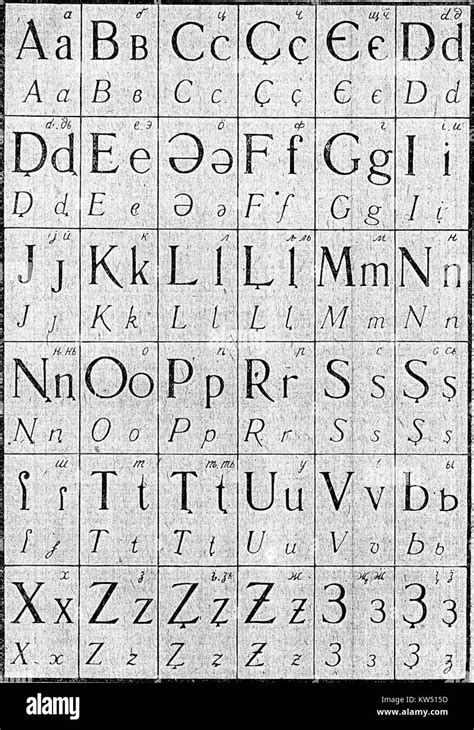 а б ц ч щ ӵ d.д
A a B ʙ C c Ç ç Є є D d
A a B ʙ C c Ç ç Є є D d
d.дь е.э ӧ ф г i.и
D̡ d̡ E e Ə ə F f G g I i
D̡ d̡ E e Ə ə F f G g I i
j й к л љ ль м н
J j K k L l Ļ ļ M m N n
J j K k L l Ļ ļ M m N n
њ нь о п р с сь
Ņ ņ O o P p R r S s Ş ş
Ņ ņ O o P p R r S s Ş ş
ш т т.ть у в ы
ʃ ʃ T t Ţ ţ U u V v Ь ь
ʃ ʃ T t Ţ ţ U u V v Ь ь
х з з.зь ж ӝ ӟ
X x Z z Z̧ z̧ Ƶ ƶ З з З̧ з̧
X x Z z Z̧ z̧ Ƶ ƶ З з З̧ з̧
alamy
Image ID: KW515D
www.alamy.com